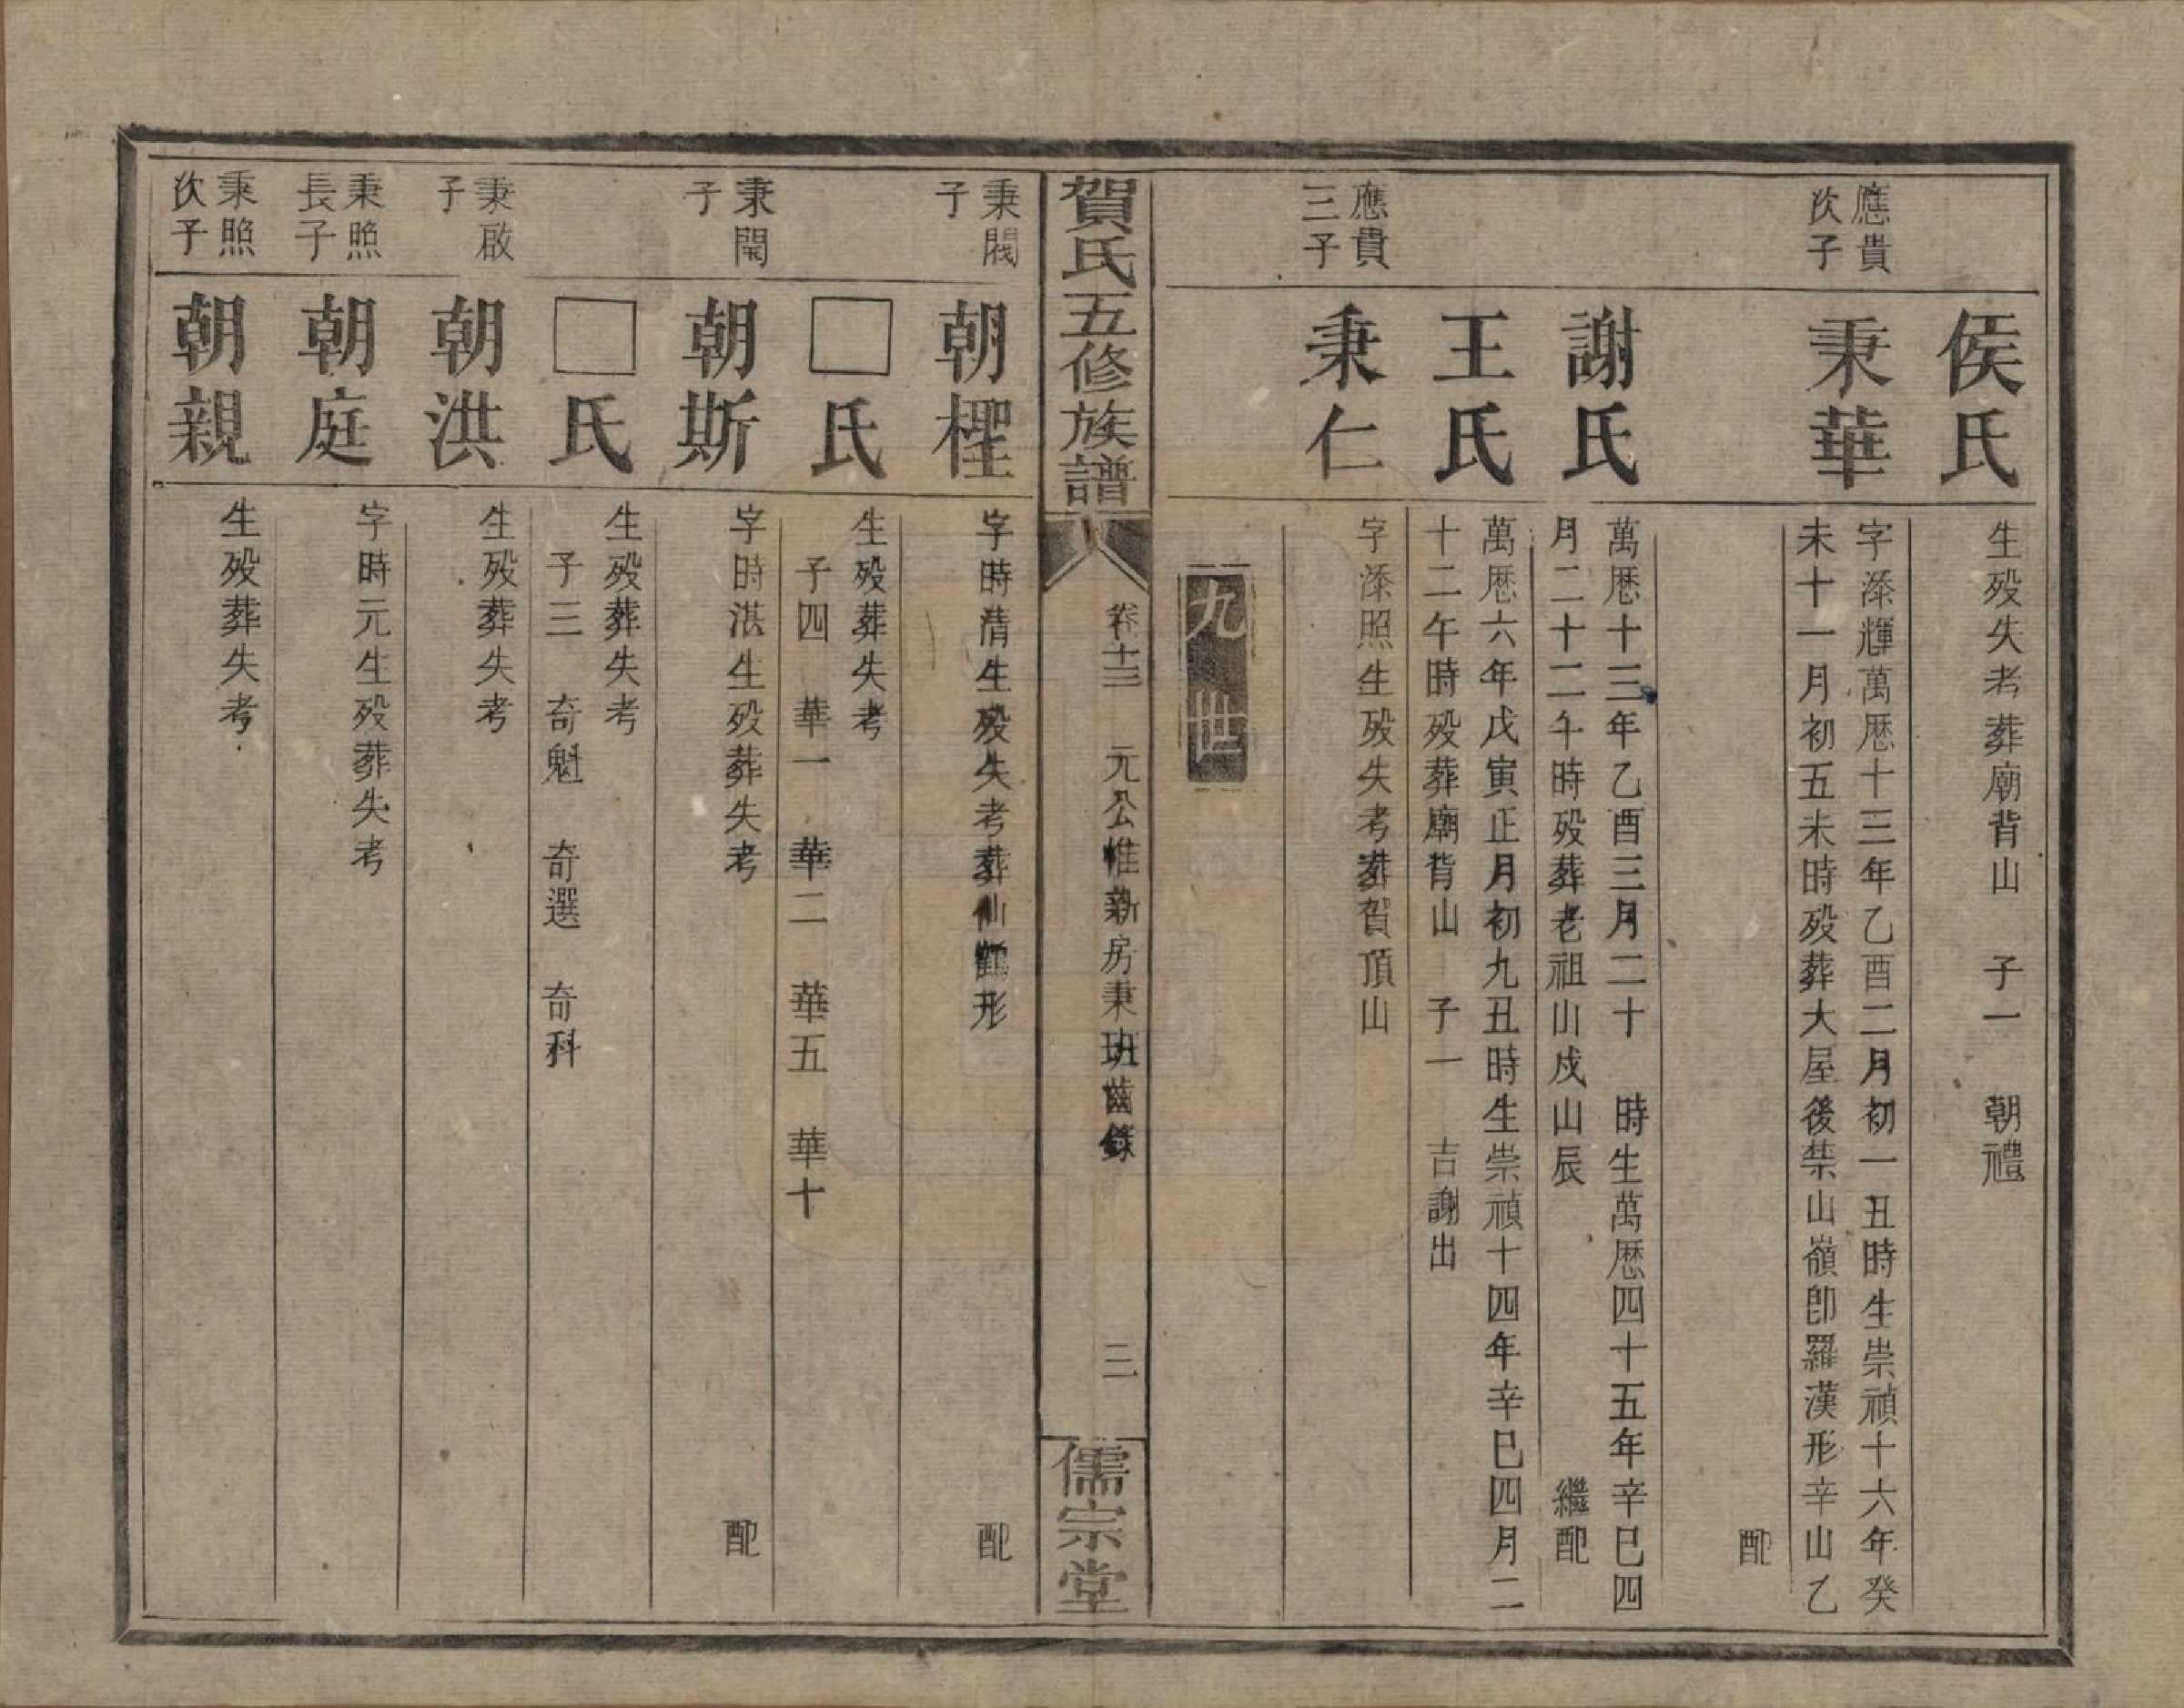 侯氏
生殁失考葬廟背山　子一　朝禮
應貴
次子
秉華
字漆輝萬歷十三年乙酉二月初一丑時生崇禎十六年癸
未十一月初五未時殁葬大屋後禁山嶺卽羅漢形辛山乙
配
謝氏
萬歷十三年乙酉三月二十　時生萬歷四十五年辛巳四
月二十二午時殁葬老祖山戍山辰　繼配
王氏
萬歷六年戊寅正月初九丑時生崇禎十四年辛巳四月二
十二午時殁葬廟背山　子一　吉謝出
應貴
三子
秉仁
字漆照生殁失考葬賀頂山
九世
賀氏五修族譜
卷十三　元公惟新房秉班齒錄　三
儒宗堂
秉閥
子
朝檉
字時清生殁失考葬仙鶴形　配
□氏
生殁葬失考
子四　華一　華二　華五　華十
秉閙
子
朝斯
字時湛生殁葬失考　配
□氏
生殁葬失考
子三　奇魁　奇選　奇科
秉啟
子
朝洪
生殁葬失考
秉照
長子
朝庭
字時元生殁葬失考
秉照
次子
朝親
生殁葬失考